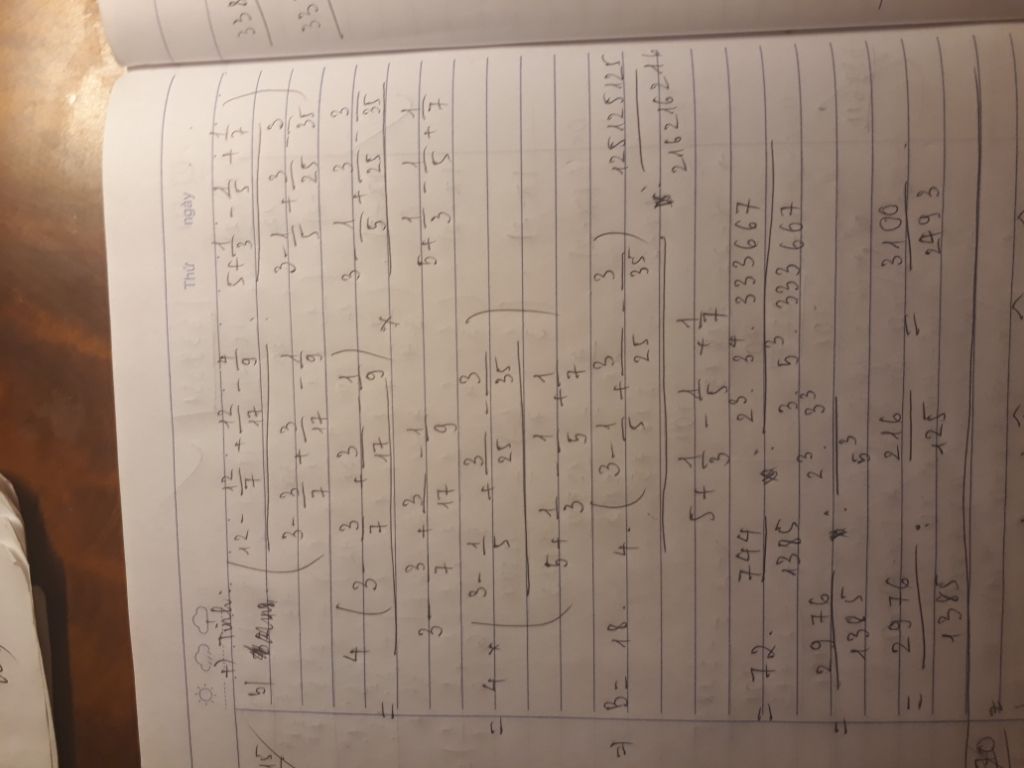 Thứ ngày
7) Tính:
b) ( (12 - 12/7 + 12/17 - 4/9) / (3 - 3/7 + 3/17 - 1/9) (5 + 1/3 - 1/5 + 1/7) / (3 - 1/5 + 3/25 - 3/35) )
= 4 (3 - 3/7 + 3/17 - 1/9) / (3 - 3/7 + 3/17 - 1/9) × (3 - 1/5 + 3/25 - 3/35) / (5 + 1/3 - 1/5 + 1/7)
= 4 × ( (3 - 1/5 + 3/25 - 3/35) / (5 + 1/3 - 1/5 + 1/7) )
=) B = 18 . 4 . (3 - 1/5 + 3/25 - 3/35) / (5 + 1/3 - 1/5 + 1/7) : 125125125 / 216216216
= 72 . 744/1385 . 2³ . 3⁴ . 333667 / 3 . 5³ . 333667
= 2976/1385 . 2³ . 3³ / 5³
= 2976/1385 : 216/125 = 3100/2493